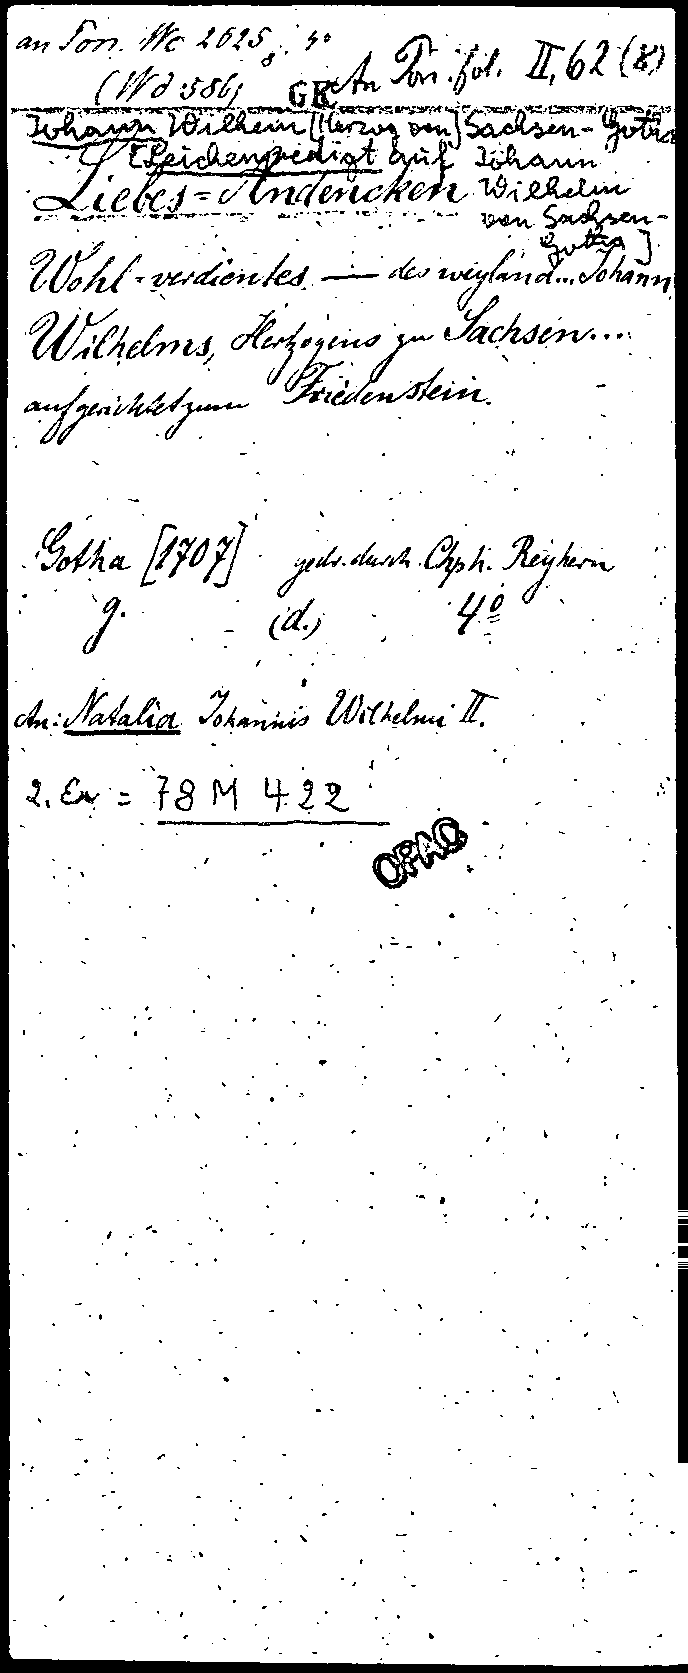 an Pon. Wc 2625, 4°
(Wd 586) GK An Pon. fol. II, 62 (8)
Johann Wilhelm [Herzog von] Sachsen-Gotha
[Leichenpredigt auf Johann
Liebes=Andencken Wilhelm
von Sachsen-
Gotha]
Wohl-verdientes — des weyland... Johann
Wilhelms, Hertzogens zu Sachsen...
aufgerichtet zum Friedenstein.
Gotha [1707] gedr. durch Chph. Reyhern
g. (d.) 4º
An: Natalia Johannis Wilhelmi II.
2. Ex = 78 M 422
OPAC